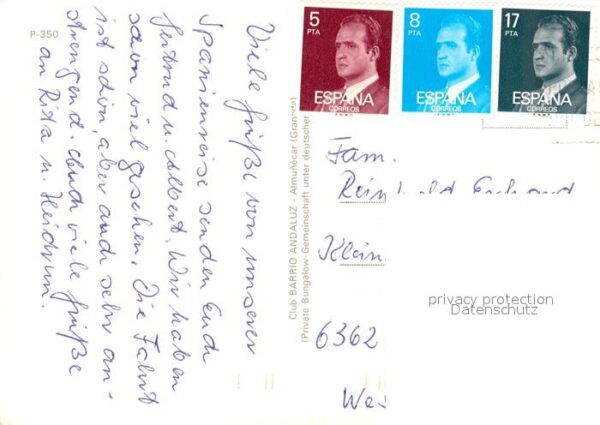 P-350
Viele Grüße von unserer
Spanienreise senden Euch
Gertrud u. Albert. Wir haben
schon viel gesehen. Die Fahrt
ist schön, aber auch sehr an-
strengend. Auch viele Grüße
an Rita u. Heidrun.
Club BARRIO ANDALUZ - Almuñécar (Granada)
(Private Bungalow-Gemeinschaft unter deutscher
5
PTA
ESPAÑA
CORREOS
8
PTA
ESPAÑA
CORREOS
17
PTA
ESPAÑA
CORREOS
Fam.
Klein
6362
privacy protection
Datenschutz